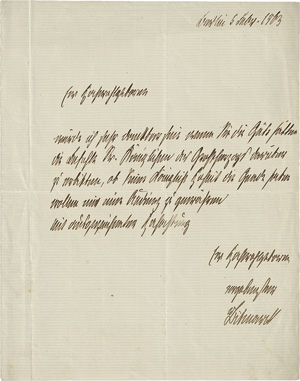 Berlin 5 Febr. 1863
Ew Hochwohlgeboren
würde ich sehr dankbar sein wenn Sie die Güte hätten
die Befehle Sr. Königlichen des Großherzogs darüber
zu erbitten, ob Seine Königliche Hoheit die Gnade haben
wollen mir eine Audienz zu gewähren
Mit ausgezeichneter Hochachtung
Ew Hochwohlgeboren
ergebenster